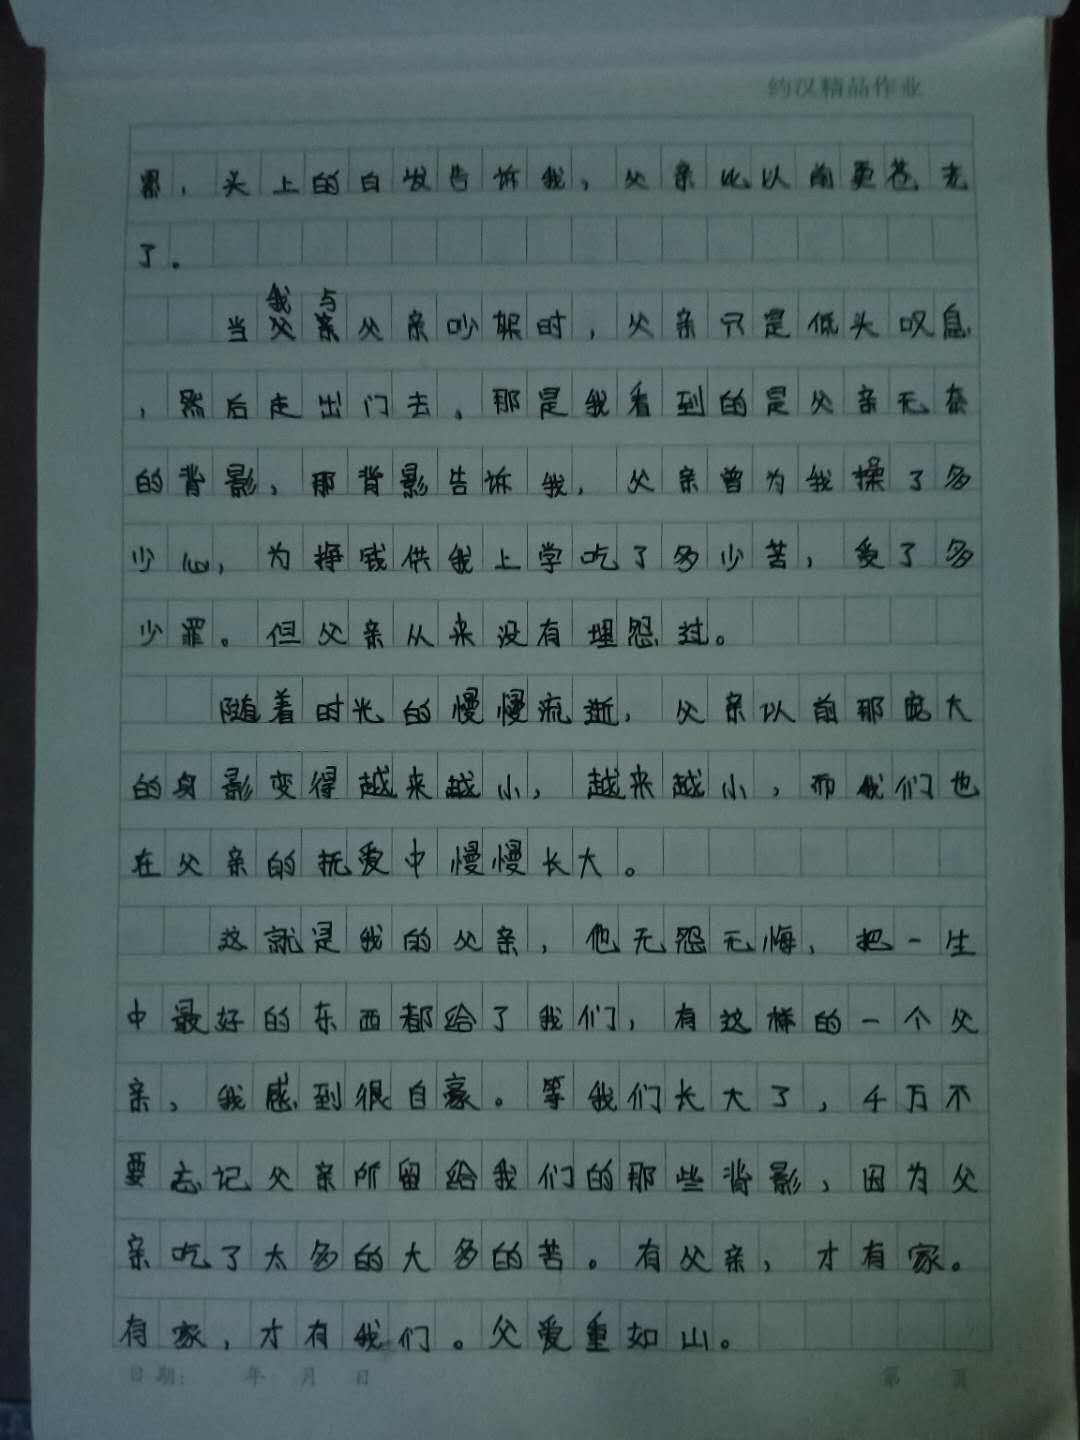 约汉精品作业
累，头上的白发告诉我，父亲比以前更苍老
了。
我与
当父亲父亲吵架时，父亲只是低头叹息
，然后走出门去。那是我看到的是父亲无奈
的背影，那背影告诉我，父亲曾为我操了多
少心，为挣钱供我上学吃了多少苦，受了多
少罪。但父亲从来没有埋怨过。
随着时光的慢慢流逝，父亲以前那庞大
的身影变得越来越小，越来越小，而我们也
在父亲的抚爱中慢慢长大。
这就是我的父亲，他无怨无悔，把一生
中最好的东西都给了我们，有这样的一个父
亲，我感到很自豪。等我们长大了，千万不
要忘记父亲所留给我们的那些背影，因为父
亲吃了太多的大多的苦。有父亲，才有家。
有家，才有我们。父爱重如山。
日期： 年 月 日 第 页